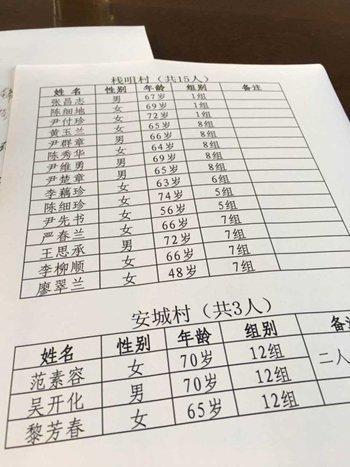 栈咀村（共15人）
姓 名 性别 年龄 组别 备注
张昌志 男 67岁 1组
陈细地 女 69岁 1组
尹付珍 女 72岁 1组
黄玉兰 女 65岁 8组
尹群章 男 66岁 8组
陈秀华 女 64岁 8组
尹维勇 男 69岁 8组
尹楚章 男 65岁 8组
李藕珍 女 63岁 6组
陈细珍 女 74岁 5组
尹先书 女 56岁 5组
严春兰 女 66岁 7组
王思承 男 72岁 7组
李柳顺 女 66岁 7组
廖翠兰 女 48岁 7组
安城村（共3人）
姓名 性别 年龄 组别 备
范素容 女 70岁 12组 二人
吴开化 男 70岁 12组
黎芳春 女 65岁 12组